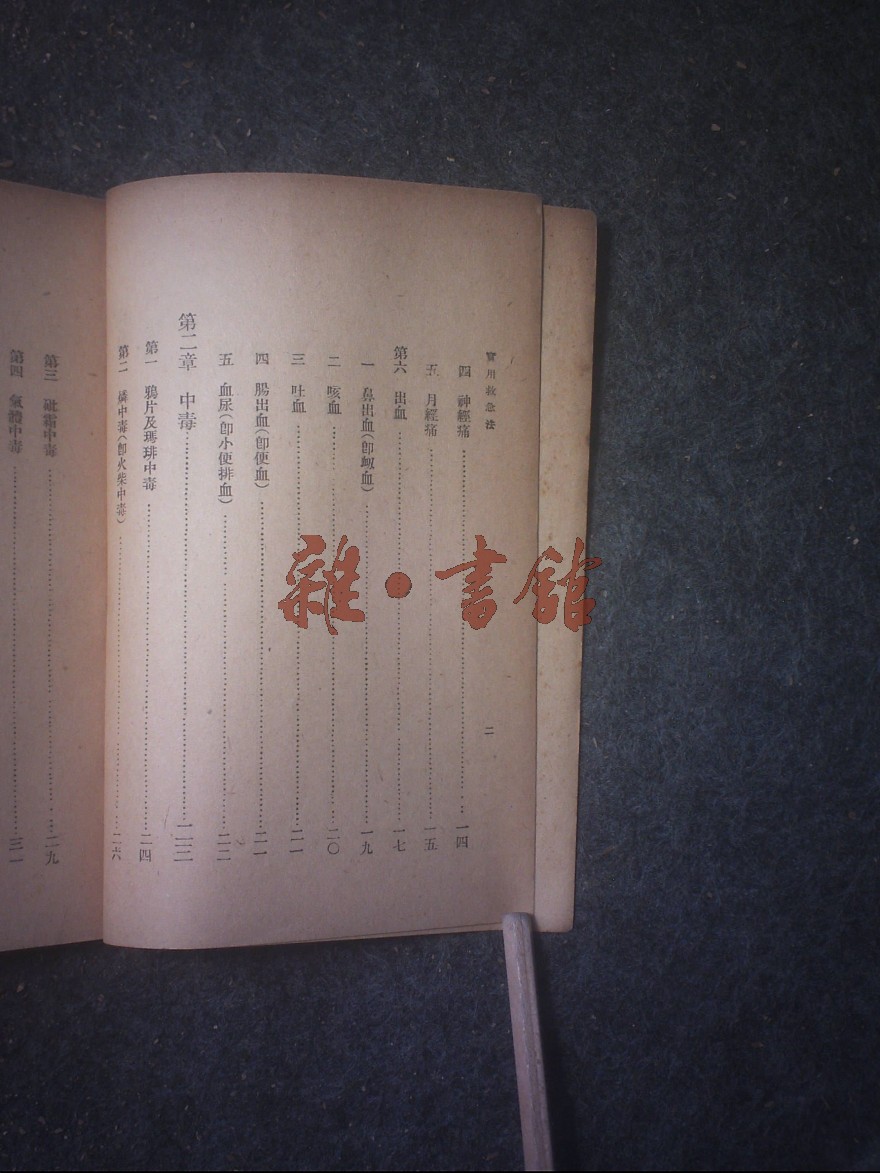 實用救急法
二
四 神經痛……一四
五 月經痛……一五
第六 出血……一七
一 鼻出血(卽衂血)……一九
二 咳血……二〇
三 吐血……二一
四 腸出血(卽便血)……二一
五 血尿(卽小便排血)……二二
第二章 中毒……二三
第一 鴉片及瑪琲中毒……二四
第二 燐中毒(卽火柴中毒)……二六
第三 砒霜中毒……二九
第四 氣體中毒……三一
雜·書館